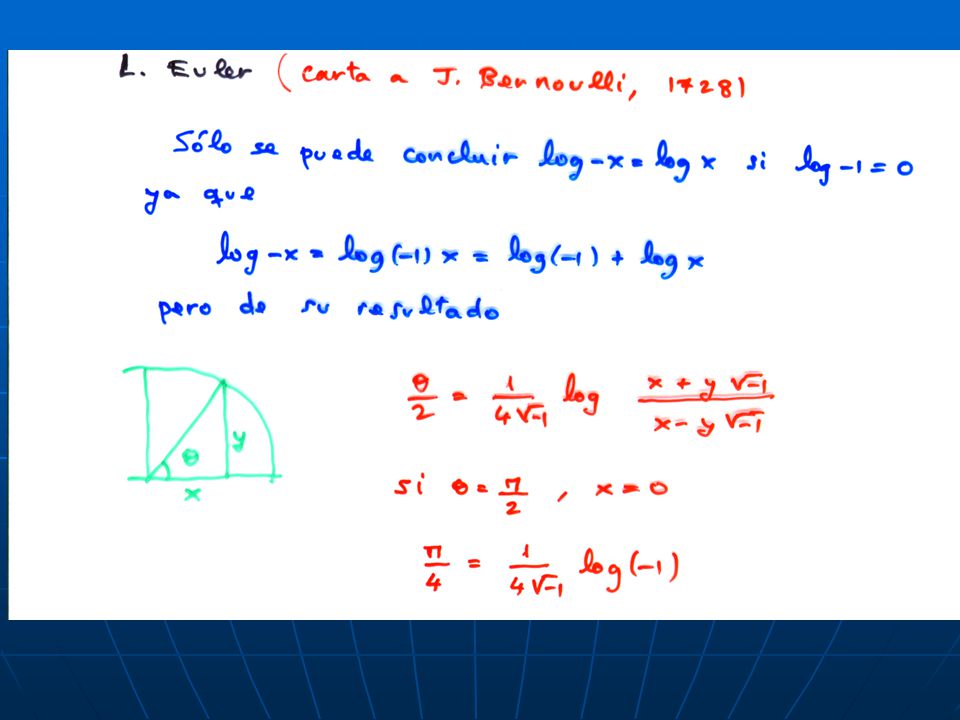 L. Euler (carta a J. Bernoulli, 1728)
Sólo se puede concluir log -x = log x si log -1 = 0
ya que
log -x = log (-1) x = log (-1) + log x
pero de su resultado
θ/2 = 1/(4√-1) log (x + y √-1)/(x - y √-1)
θ
y
x
si θ = π/2 , x = 0
π/4 = 1/(4√-1) log (-1)